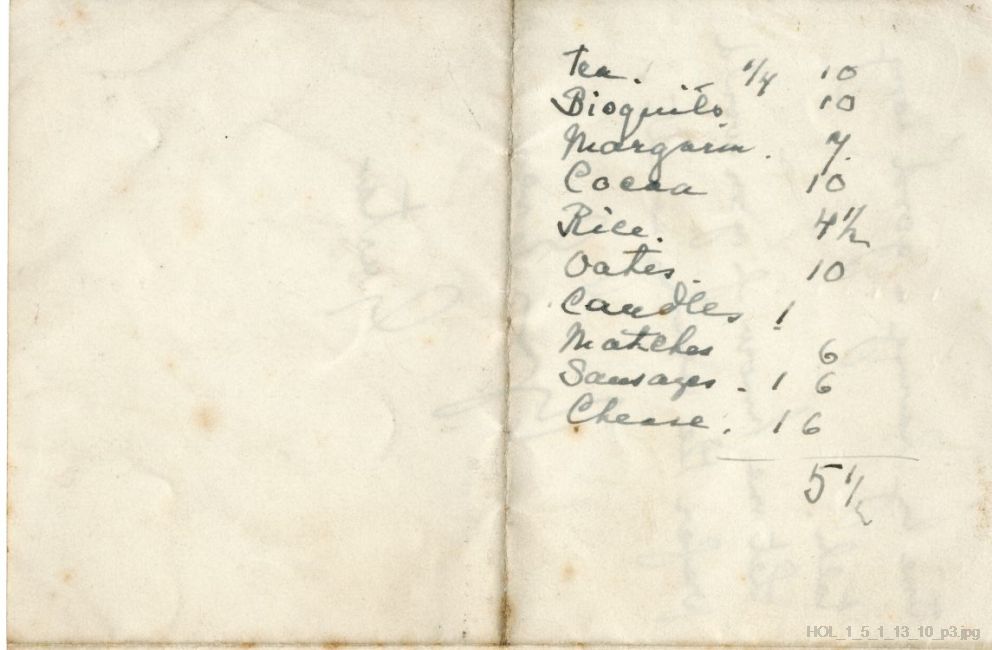 Tea. 1/4 10
Bisquits 10
Margarin. 7.
Cocoa 10
Rice. 4 1/2
Oates. 10
Candles 1
Matches 6
Sausages - 1 6
Cheese. 1 6
5 1/2
HOL_1_5_1_13_10_p3.jpg